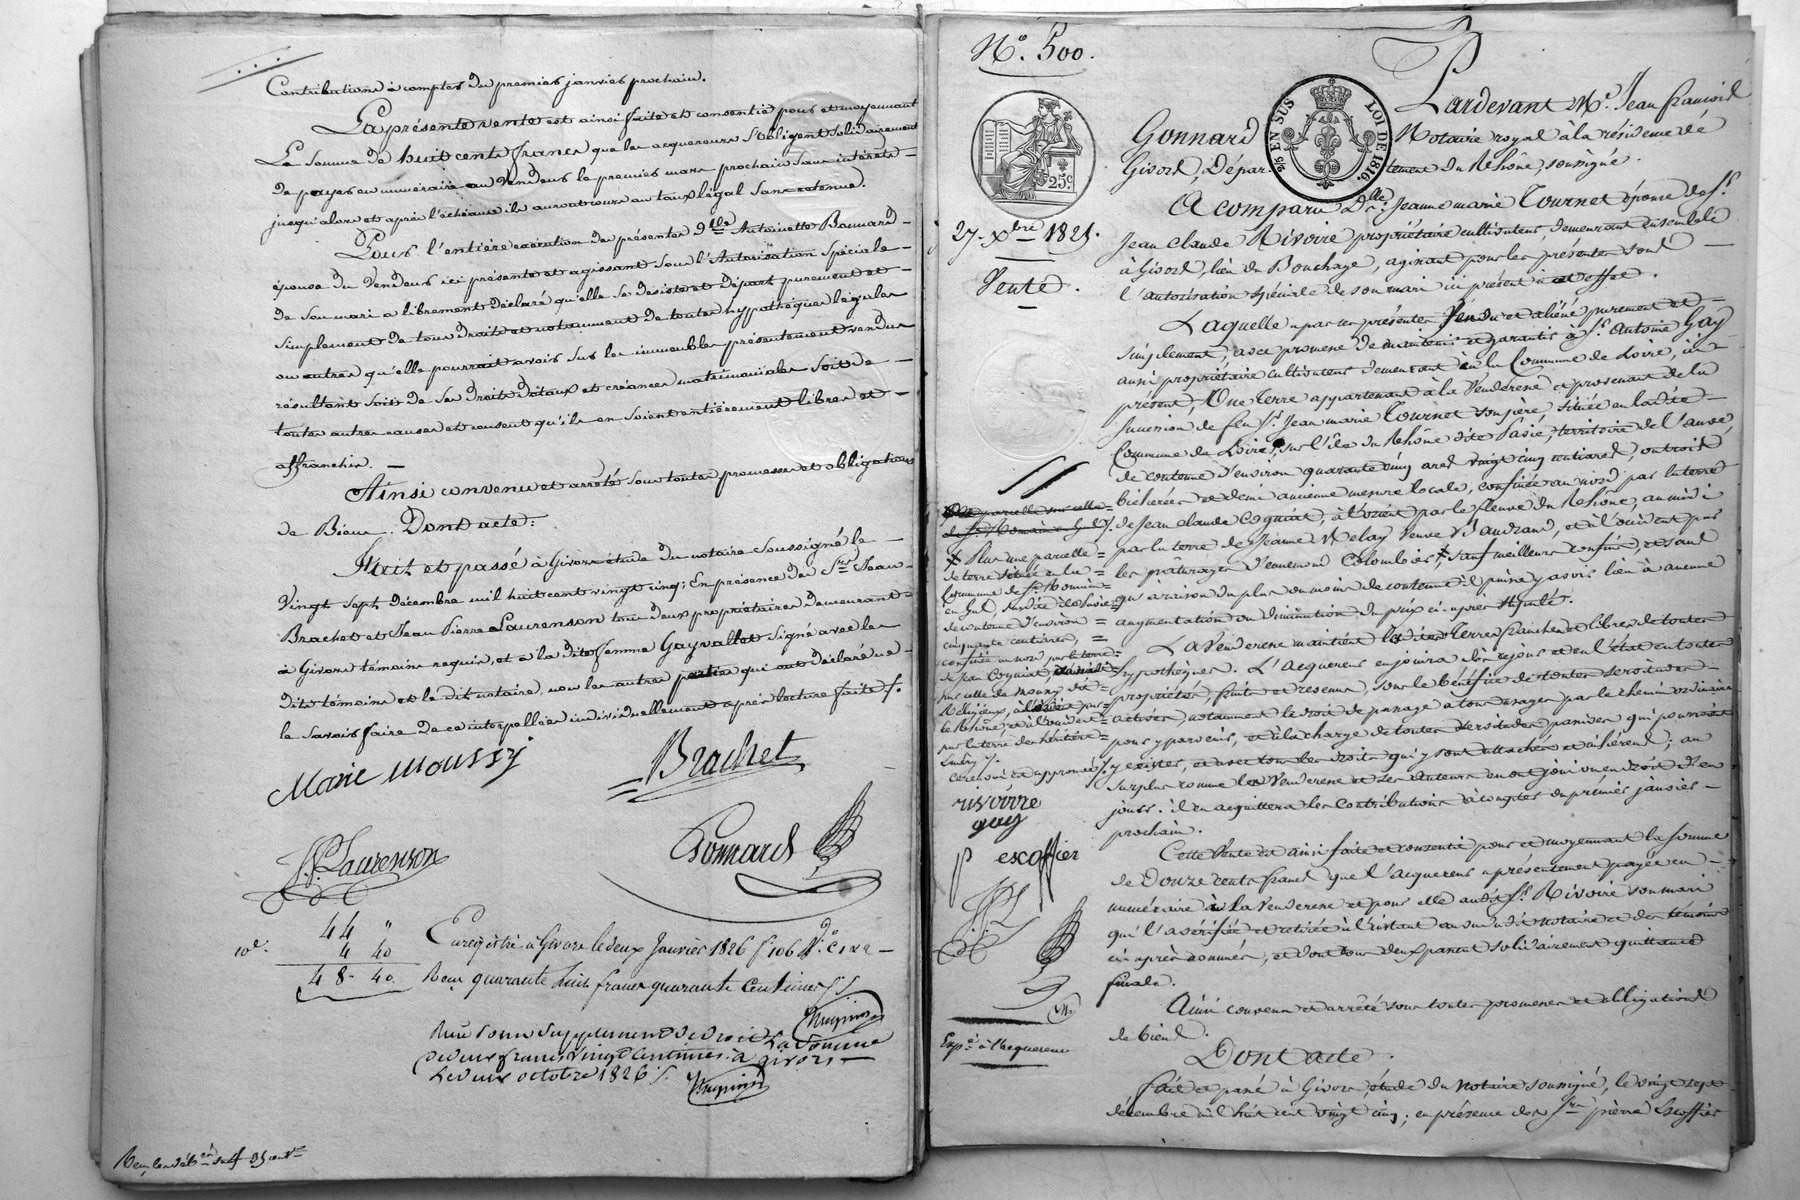 Contributions à compter du premier janvier prochain.
La présente vente est ainsi faite et consentie pour et moyennant
La somme de huit cents francs que les acquereurs s'obligent solidairement
de payer en numéraire au Vendeur le premier mars prochain sans intérêts
jusqu'alors et après l'échéance ils auront cours au taux légal sans retenue.
Pour l'entière exécution des présentes dlle Antoinette Bonnard
épouse du Vendeur ici présente et agissant sous l'Autorisation Spéciale
de son mari a librement déclaré qu'elle se désiste et départ purement et
simplement de tous droits et notamment de toutes hypothèques légales
ou autres qu'elle pourrait avoir sur les immeubles présentement vendus
résultant soit de ses droits dotaux et créances matrimoniales soit de
toutes autres causes et consent qu'ils en soient entièrement libres et
affranchis.
Ainsi convenu et arrêté sous toutes promesses et obligations
de Biens. Dont acte:
Fait et passé à Givors étude du notaire soussigné le
Vingt sept décembre mil huit cent vingt cinq: En présence des Srs Jean
Brachet et Jean Pierre Laurenson tous deux propriétaires demeurant
à Givors témoins requis, et à la dite femme Gayvallet signé avec les
dits témoins et le dit notaire, non les autres parties qui ont déclaré ne
le savoir faire de ce interpellées individuellement après lecture faite.
Marie moussy
Brachet
J.P. Laurenson
Gonnard
44 "
10e. 4 40
48 - 40
Enregistré à Givors le deux Janvier 1826 fo 106
Reçu quarante huit francs quarante Centimes
Reçu pour supplément de droit La Somme
de deux francs vingt Centimes à givors
Le deux octobre 1826
No. 500.
25c
2/10 EN SUS
LOI DE 1816.
27 Xbre 1825.
Vente.
Pardevant Me. Jean françois
Gonnard Notaire royal à la résidence de
Givors, Département du Rhône, soussigné.
A comparu Dlle. Jeanne marie Tournet épouse de Sr.
Jean Claude Rivoire propriétaire cultivateur, demeurant ensemble
à Givors, lieu du Bouchage, agissant pour les présentes sous
l'autorisation spéciale de son mari ici présent à cet effet.
Laquelle a par ces présentes Vendu et aliéné purement et
simplement, avec promesse de maintenir et garantir à Sr. Antoine Gay
aussi propriétaire cultivateur demeurant en la Commune de Loire, ici
présent, Une Terre appartenant à la Venderesse et provenant de la
succession de feu Sr. Jean marie Tournet son père, située en la dite
Commune de Loire, sur l'île du Rhône dite Pavie, territoire de
de contenue d'environ quarante cinq ares vingt cinq centiares, ou trois
bicherées et demi ancienne mesure locale, confinée au nord par la terre
de Jean Claude Coquiat, à l'orient par le fleuve du Rhône, au midi
par la terre de Jeanne Velay Veuve Baudrand, et à l'occident par
les paturages d'ennemond Colombier, sauf meilleurs confins, et sans
qu'à raison du plus ou moins de contenue il puisse y avoir lieu à aucune
augmentation ou diminution du prix ci-après stipulé.
La Venderesse maintient la dite Terre franche et libre de toutes
hypothèques. L'acquereur en jouira dès ce jour et en l'état en toutes
propriétés, fruits et revenus, sous le bénéfice de toutes servitudes
actives, notamment le droit de passage à tous usages par le chemin vicinaire
pour y parvenir, et à la charge de toutes servitudes passives qui pourraient
y exister, et avec tous les droits qui y sont attachés et adhérent; au
surplus comme la Venderesse et ses Auteurs en ont joui ou eu droit d'en
jouir: il en acquittera les contributions à compter du premier janvier
prochain.
Cette Vente est ainsi faite et consentie pour et moyennant la somme
de Douze cents francs que l'acquereur a présentement payée en
numéraire à la Venderesse et pour elle audit Sr. Rivoire son mari
qui l'a vérifiée et retirée à l'instant au vu dudit notaire et des témoins
ci-après nommés, et dont tous deux passent solidairement quittance
finale.
Ainsi convenu et arrêté sous toutes promesses et obligations
de biens.
Dont acte.
fait et passé à Givors, étude du notaire soussigné, le vingt sept
décembre mil huit cent vingt cinq; en présence des Srs. pierre Escoffier
Plus une parcelle
de terre située en la
Commune de St. Romain
en Gal,
de contenue d'environ
cinquante centiares,
confinée au nord par la terre
de Jean Coquiat,
le Rhône, et à l'occident
par la terre des héritiers
rivoire
gay
P escoffier
JPL
Expé. à l'acquereur